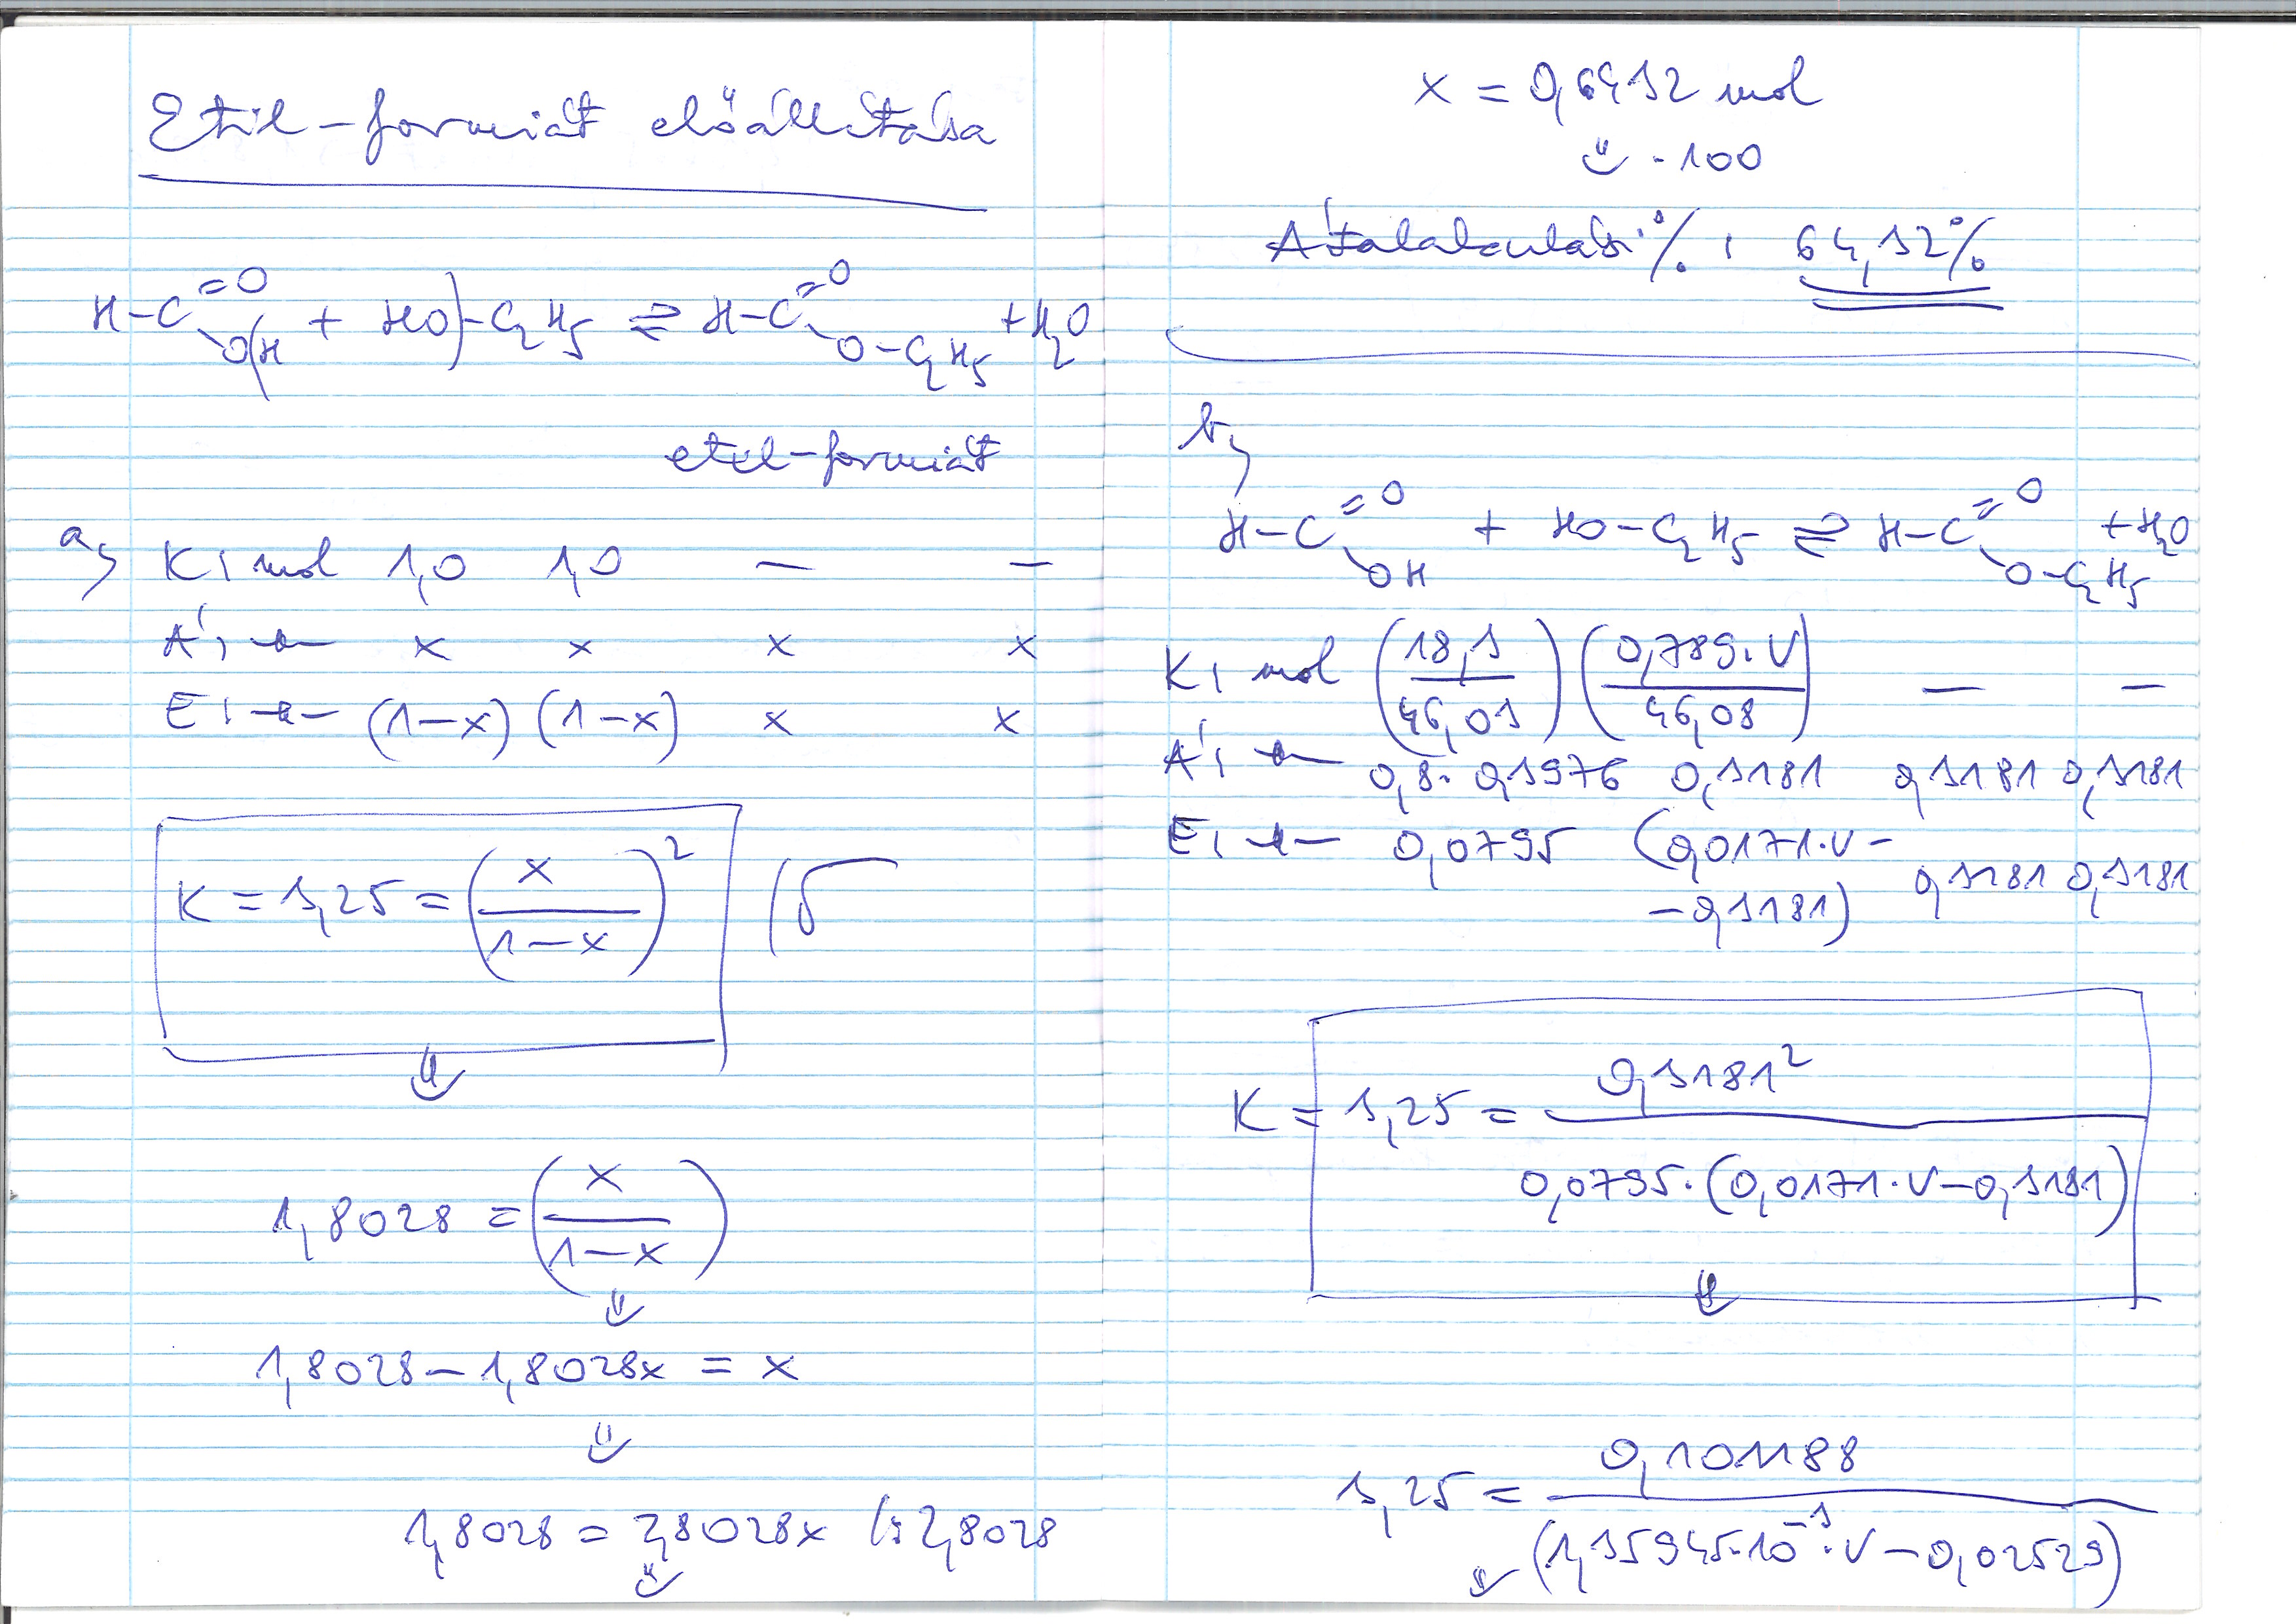 Etil-formiát előállítása
H-C=O OH + HO-C₂H₅ ⇌ H-C=O O-C₂H₅ + H₂O
etil-formiát
a,
K: mol 1,0 1,0 — —
Á: -"- x x x x
E: -"- (1-x) (1-x) x x
K = 3,25 = (x/(1-x))² /√
⇓
1,8028 = (x/(1-x))
⇓
1,8028 - 1,8028x = x
⇓
1,8028 = 2,8028x /: 2,8028
⇓
x = 0,6432 mol
⇓ ·100
Átalakulási %: 64,32%
b,
H-C=O OH + HO-C₂H₅ ⇌ H-C=O O-C₂H₅ + H₂O
K: mol (18,3/46,03) (0,789·V/46,08) — —
Á: -"- 0,8·0,3976 0,3181 0,3181 0,3181
E: -"- 0,0795 (0,0171·V-
-0,3181) 0,3181 0,3181
K = 3,25 = 0,3181²/(0,0795·(0,0171·V-0,3181))
⇓
3,25 = 0,101188/(1,35945·10⁻³·V-0,02529)
⇓